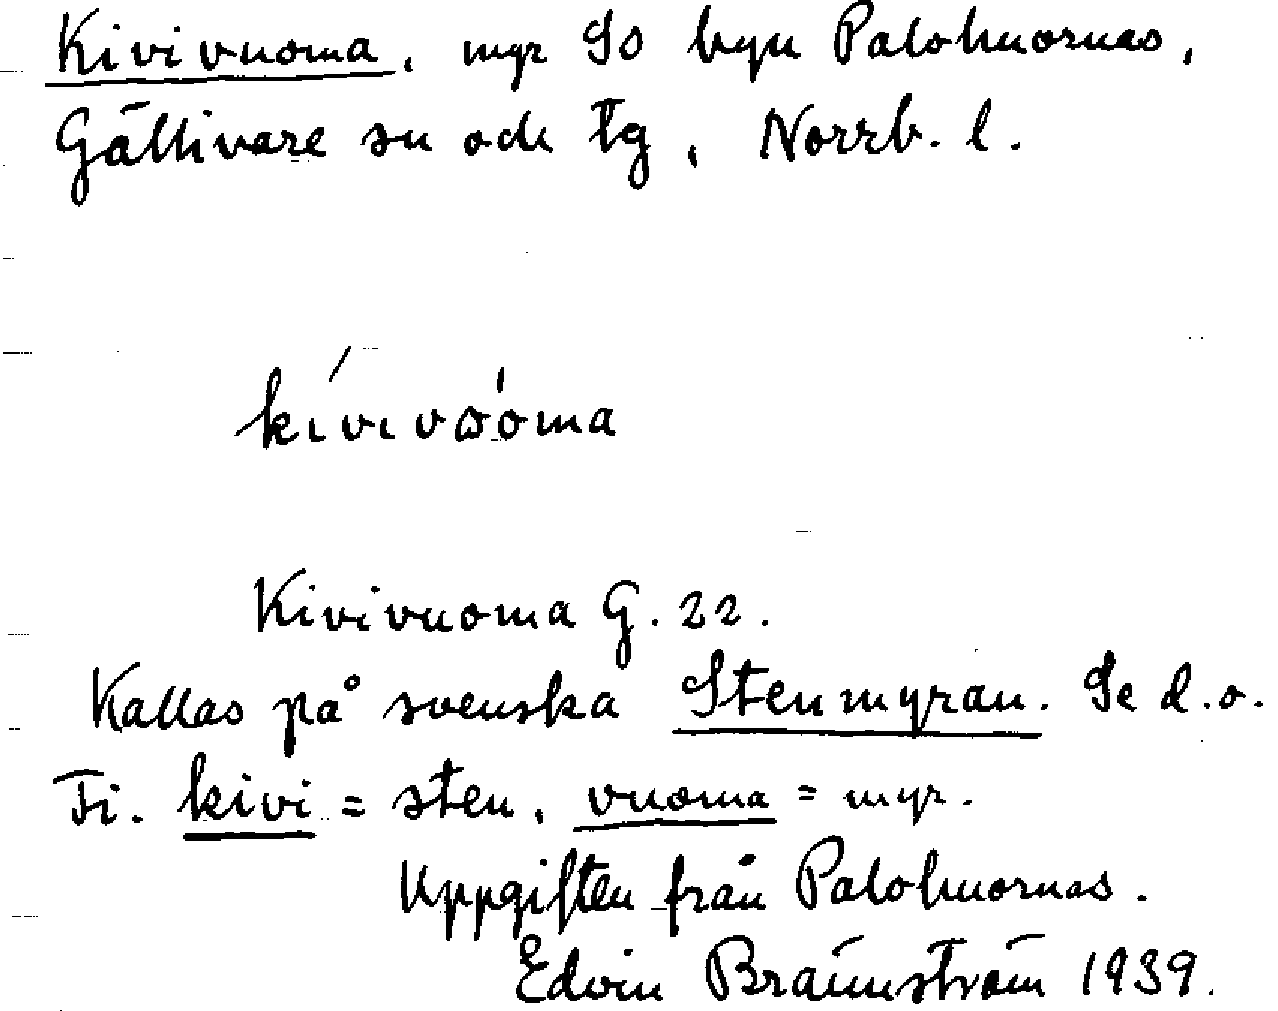 Kivivuoma, myr SO byn Palohuornas,
Gällivare sn och tg, Norrb. l.
Kivivuoma G. 22.
Kallas på svenska Stenmyran. Se d.o.
Fi. kivi = sten, vuoma = myr.
Uppgiften från Palohuornas.
Edvin Brännström 1939.